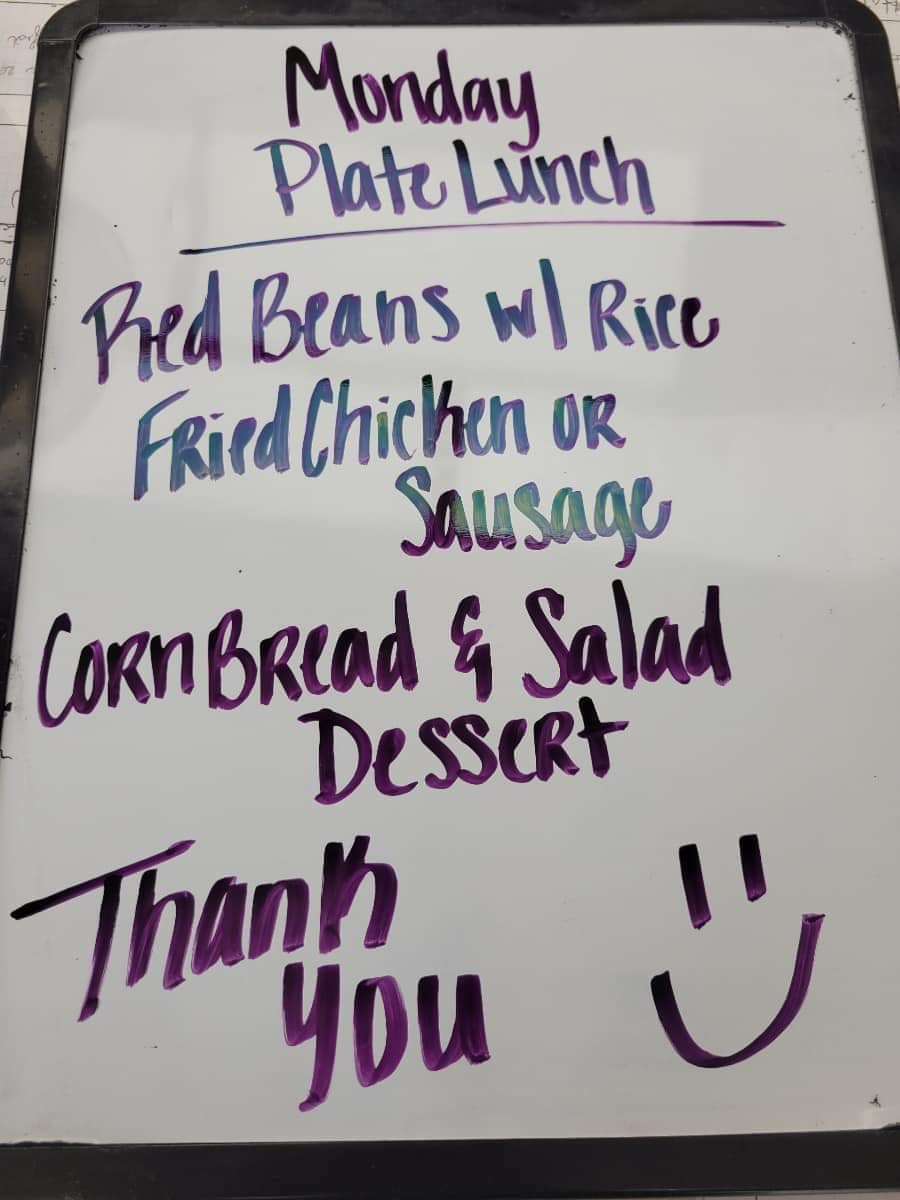 Monday
Plate Lunch
Red Beans w/ Rice
Fried Chicken or
Sausage
Corn Bread & Salad
Dessert
Thank
you